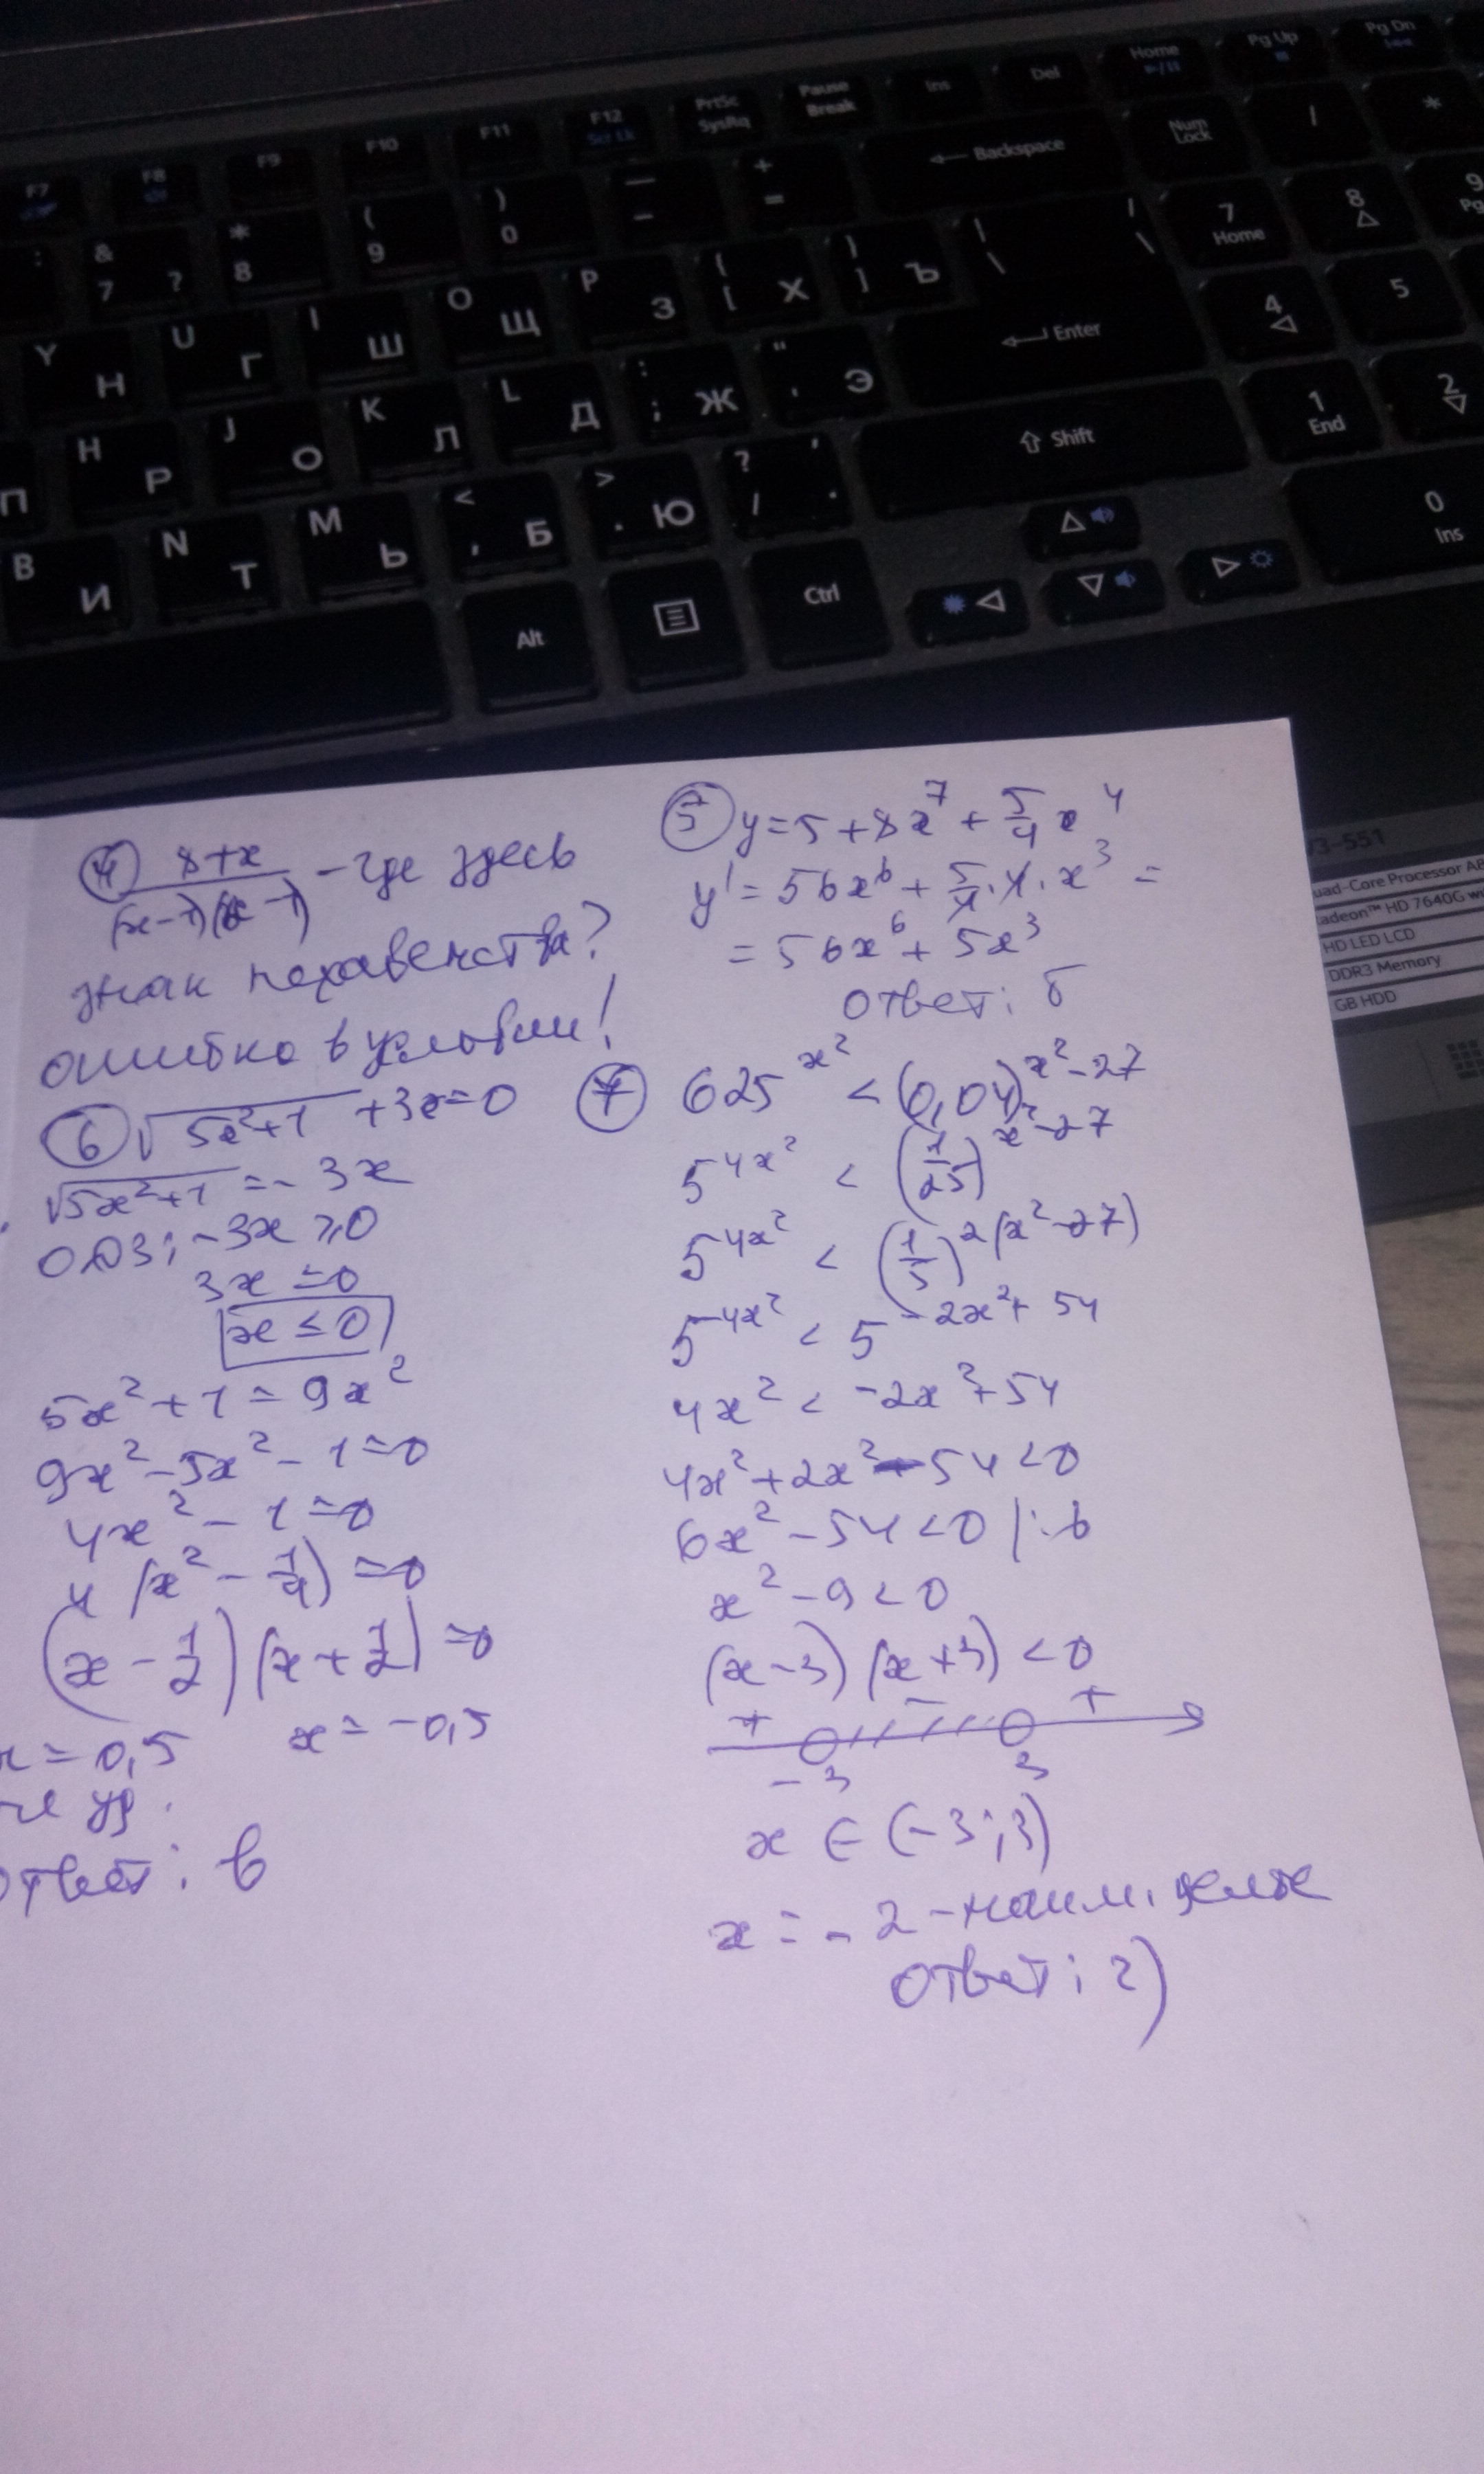 F7 F8 F9 F10 F11 F12 Scr Lk PrtSc SysRq Pause Break Ins Del Home Pg Up Pg Dn
& 7 ? * 8 ( 9 ) 0 — - + = ← Backspace Num Lock / *
Y Н U Г I Ш O Щ P З { [ Х } ] Ъ | \ | \ 7 Home 8 9 Pg
H Р J О K Л L Д : ; Ж " ' Э Enter 4 5
П
В И N Т M Ь < , Б > . Ю ? / , . Shift 1 End 2
Alt Ctrl 0 Ins
V3-551
uad-Core Processor A8
adeon™ HD 7640G w
HD LED LCD
DDR3 Memory
GB HDD
④ (8+x)/((x-1)(x-1)) - где здесь
знак неравенства?
ошибка в условии!
⑥ √(5x²+1) + 3x = 0
√(5x²+1) = -3x
ОДЗ: -3x ≥ 0
3x ≤ 0
x ≤ 0
5x² + 1 = 9x²
9x² - 5x² - 1 = 0
4x² - 1 = 0
4 (x² - 1/4) = 0
(x - 1/2)(x + 1/2) = 0
x = 0,5 x = -0,5
не ур.
ответ: в
⑤ y = 5 + 8x⁷ + 5/4 x⁴
y' = 56x⁶ + 5/4 · 4 · x³ =
= 56x⁶ + 5x³
ответ: б
⑦ 625^(x²) < (0,04)^(x²-27)
5^(4x²) < (1/25)^(x²-27)
5^(4x²) < (1/5)^(2(x²-27))
5^(4x²) < 5^(-2x²+54)
4x² < -2x² + 54
4x² + 2x² - 54 < 0
6x² - 54 < 0 | :6
x² - 9 < 0
(x-3)(x+3) < 0
+ - +
-3 3
x ∈ (-3;3)
x = -2 - наим. целое
ответ: г)